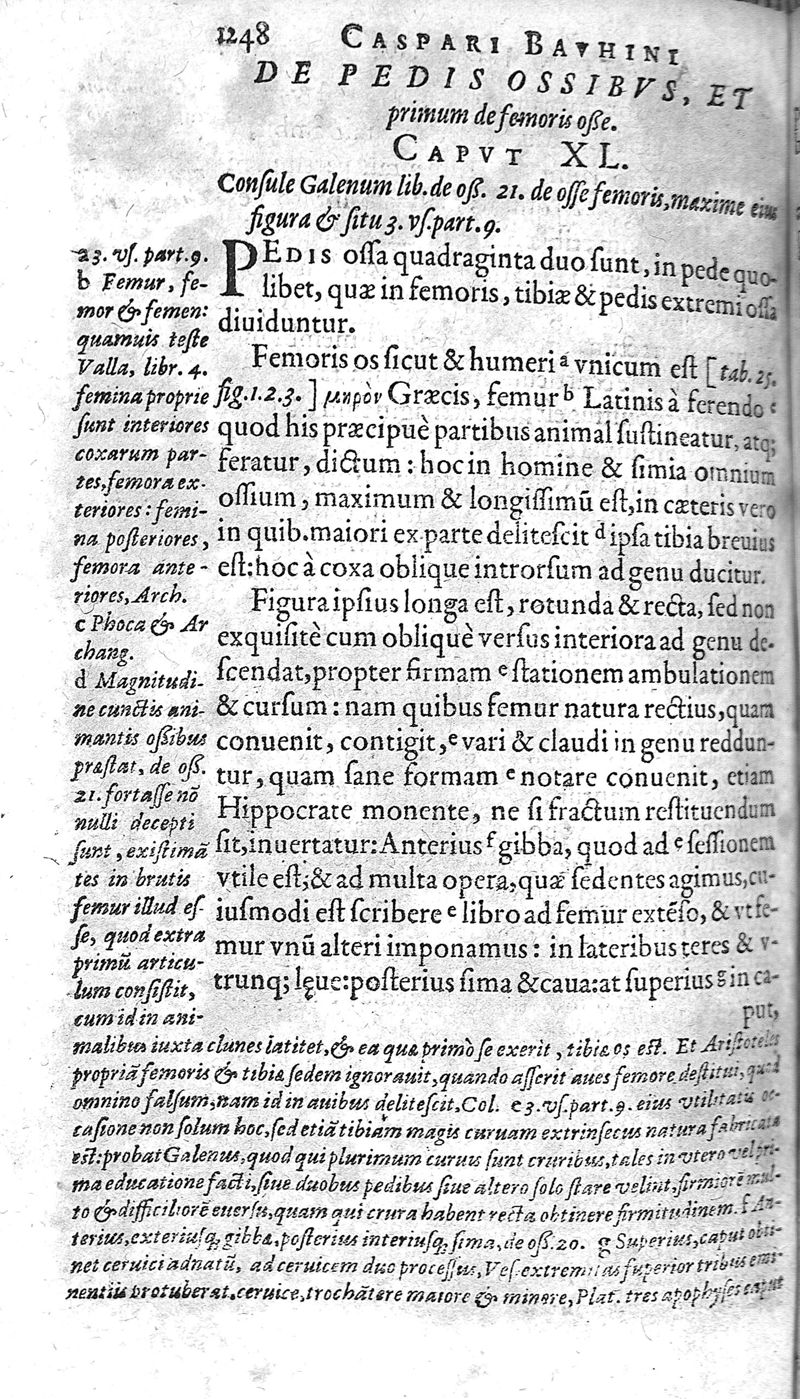 1248 CASPARI BAVHINI
DE PEDIS OSSIBVS, ET
primum de femoris oſſe.
CAPVT XL.
Conſule Galenum lib. de oſſ. 21. de oſſe femoris, maxime eius
figura & ſitu 3. vſ. part. 9.
PEDIS oſſa quadraginta duo ſunt, in pede quo-
libet, quæ in femoris, tibiæ & pedis extremi oſſa
diuiduntur.
Femoris os ſicut & humeri ª vnicum eſt [tab. 25.
fig. 1. 2. 3.] μηρὸν Græcis, femur ᵇ Latinis à ferendo ᶜ
quod his præcipuè partibus animal ſuſtineatur, atq;
feratur, dictum: hoc in homine & ſimia omnium
oſſium, maximum & longiſſimũ eſt, in cæteris vero
in quib. maiori ex parte deliteſcit ᵈ ipſa tibia breuius
eſt: hoc à coxa oblique introrſum ad genu ducitur.
Figura ipſius longa eſt, rotunda & recta, ſed non
exquiſitè cum obliquè verſus interiora ad genu de-
ſcendat, propter firmam ᵉ ſtationem ambulationem
& curſum: nam quibus femur natura rectius, quam
conuenit, contigit, ᵉ vari & claudi in genu reddun-
tur, quam ſane formam ᵉ notare conuenit, etiam
Hippocrate monente, ne ſi fractum reſtituendum
ſit, inuertatur: Anterius ᶠ gibba, quod ad ᵉ ſeſſionem
vtile eſt; & ad multa opera, quæ ſedentes agimus, cu-
iusmodi eſt ſcribere ᵉ libro ad femur extẽſo, & vt fe-
mur vnũ alteri imponamus: in lateribus teres & v-
trunq; lęue: poſterius ſima & caua: at ſuperius ᵍ in ca-
put,
a 3. vſ. part. 9.
b Femur, fe-
mor & femen:
quamuis teſte
Valla, libr. 4.
femina proprie
ſunt interiores
coxarum par-
tes, femora ex-
teriores: femi-
na poſteriores,
femora ante-
riores, Arch.
c Phoca & Ar
chang.
d Magnitudi-
ne cunctis ani-
mantis oſſibus
præſtat, de oſſ.
21. fortaſſe nõ
nulli decepti
ſunt, exiſtimã
tes in brutis
femur illud eſ-
ſe, quod extra
primũ articu-
lum conſiſtit,
cum id in ani-
malibus iuxta clunes latitet, & ea quæ primò ſe exerit, tibiæ os eſt. Et Ariſtoteles
propriã femoris & tibiæ ſedem ignorauit, quando aſſerit aues femore deſtitui, quod
omnino falſum, nam id in auibus deliteſcit, Col. e 3. vſ. part. 9. eius vtilitatis oc-
caſione non ſolum hoc, ſed etiã tibiam magis curuam extrinſecus natura fabricata
eſt: probat Galenus, quod qui plurimum curuis ſunt cruribus, tales in vtero vel pri-
ma educatione facti, ſiue duobus pedibus ſiue altero ſolo ſtare velint, firmiorẽ mul-
to & difficiliorẽ euerſu, quam qui crura habent recta obtinere firmitudinem. f An-
terius, exteriuſq; gibba, poſterius interiuſq; ſima, de oſſ. 20. g Superius, caput obti-
net ceruici adnatũ, ad ceruicem duo proceſſus, Veſ. extremitas ſuperior tribus emi-
nentiis protuberat, ceruice, trochãtere maiore & minore, Plat. tres apophyſes caput